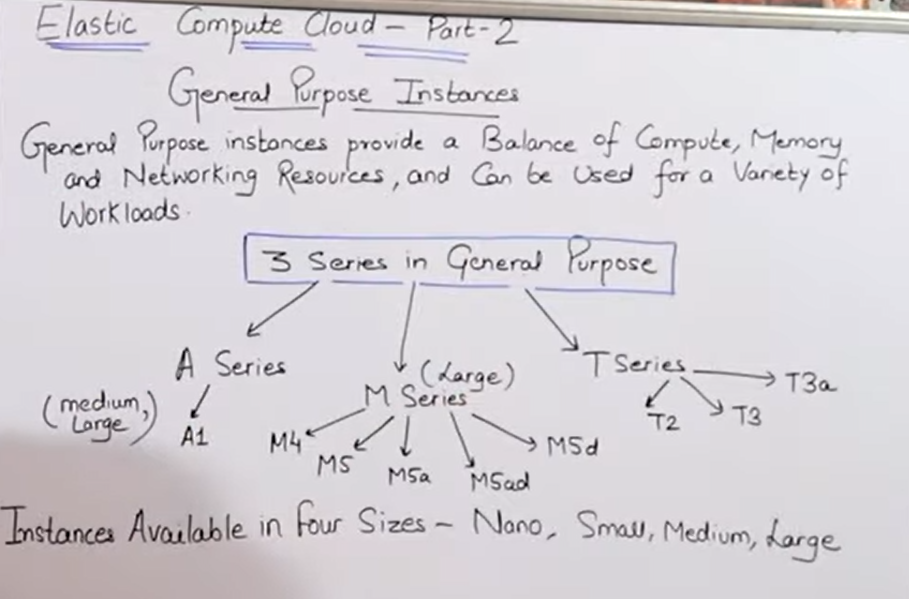 Elastic Compute Cloud - Part-2
General Purpose Instances
General Purpose instances provide a Balance of Compute, Memory
and Networking Resources, and Can be Used for a Variety of
Workloads.
3 Series in General Purpose
A Series
(medium, Large)
A1
(Large)
M Series
M4
M5
M5a
M5ad
M5d
T Series
T2
T3
T3a
Instances Available in Four Sizes - Nano, Small, Medium, Large